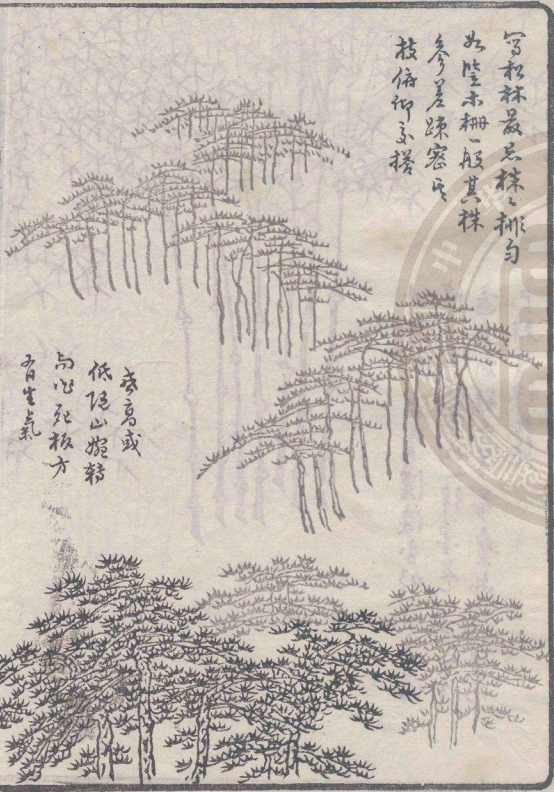 寫松林最忌株〻排勻
如豎木柵一般其株
參差疎密其
枝俯仰交搭
或高或
低隨山婉轉
勿作死板方
有生氣